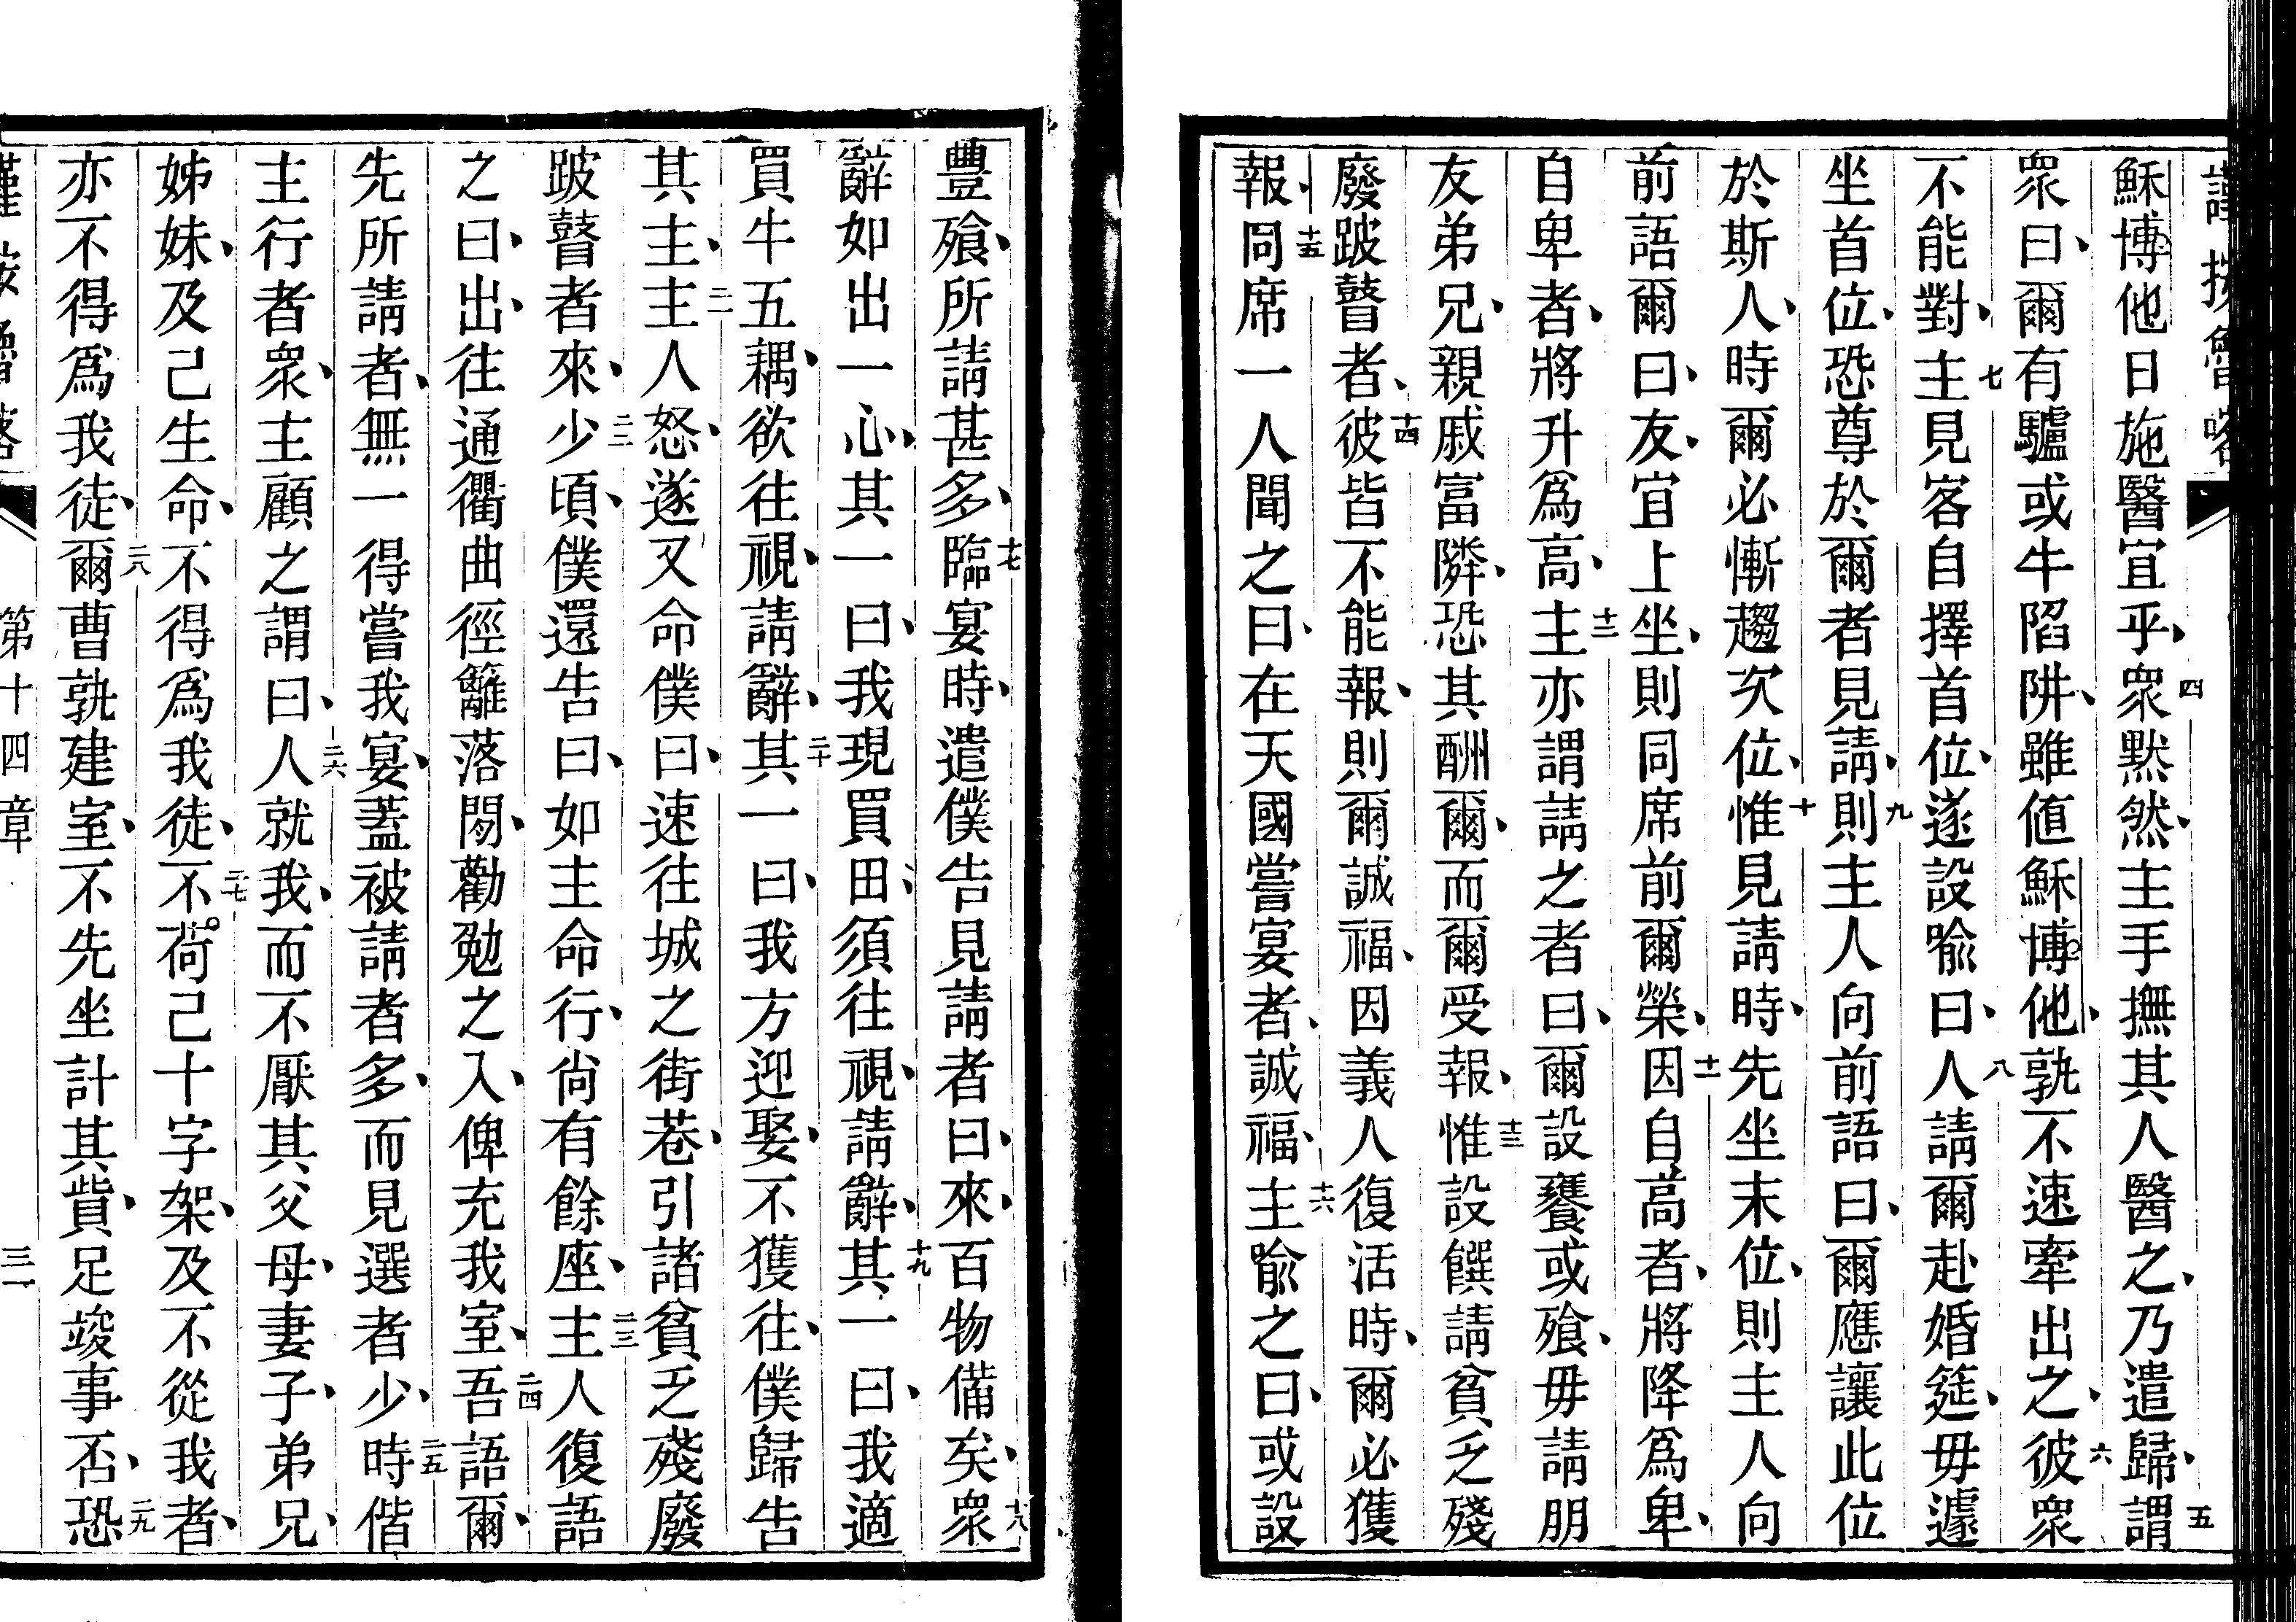 穌博他日施醫宜乎、四衆默然、主手撫其人醫之、乃遣歸、五謂
衆曰、爾有驢或牛陷阱、雖值穌博他、孰不速牽出之、六彼衆
不能對、七主見客自擇首位、遂設喻曰、八人請爾赴婚筵、毋遽
坐首位、恐尊於爾者見請、九則主人向前語曰、爾應讓此位
於斯人、時爾必慚趨次位、十惟見請時、先坐末位、則主人向
前語爾曰、友、宜上坐、則同席前爾榮、十一因自高者、將降爲卑、
自卑者、將升爲高、十二主亦謂請之者曰、爾設饔或飱、毋請朋
友弟兄、親戚富隣、恐其酬爾、而爾受報、十三惟設饌請貧乏殘
廢跛瞽者、十四彼皆不能報、則爾誠福、因義人復活時、爾必獲
報、十五同席一人聞之曰、在天國嘗宴者、誠福、十六主喻之曰、或設
豐飱、所請甚多、十七臨宴時、遣僕告見請者曰、來、百物備矣、十八衆
辭如出一心、其一曰、我現買田、須往視、請辭、十九其一曰、我適
買牛五耦、欲往視、請辭、二十其一曰、我方迎娶、不獲往、僕歸告
其主、二一主人怒、遂又命僕曰、速往城之街巷、引諸貧乏殘廢
跛瞽者來、二二少頃、僕還告曰、如主命行、尚有餘座、二三主人復語
之曰、出、往通衢曲徑籬落間、勸勉之入、俾充我室、二四吾語爾、
先所請者、無一得嘗我宴、蓋被請者多、而見選者少、二五時偕
主行者衆、主顧之謂曰、二六人就我、而不厭其父母、妻子、弟兄、
姊妹、及己生命、不得爲我徒、二七不荷己十字架、及不從我者、
亦不得爲我徒、二八爾曹孰建室、不先坐計其貲、足竣事否、二九恐
第十四章 三一